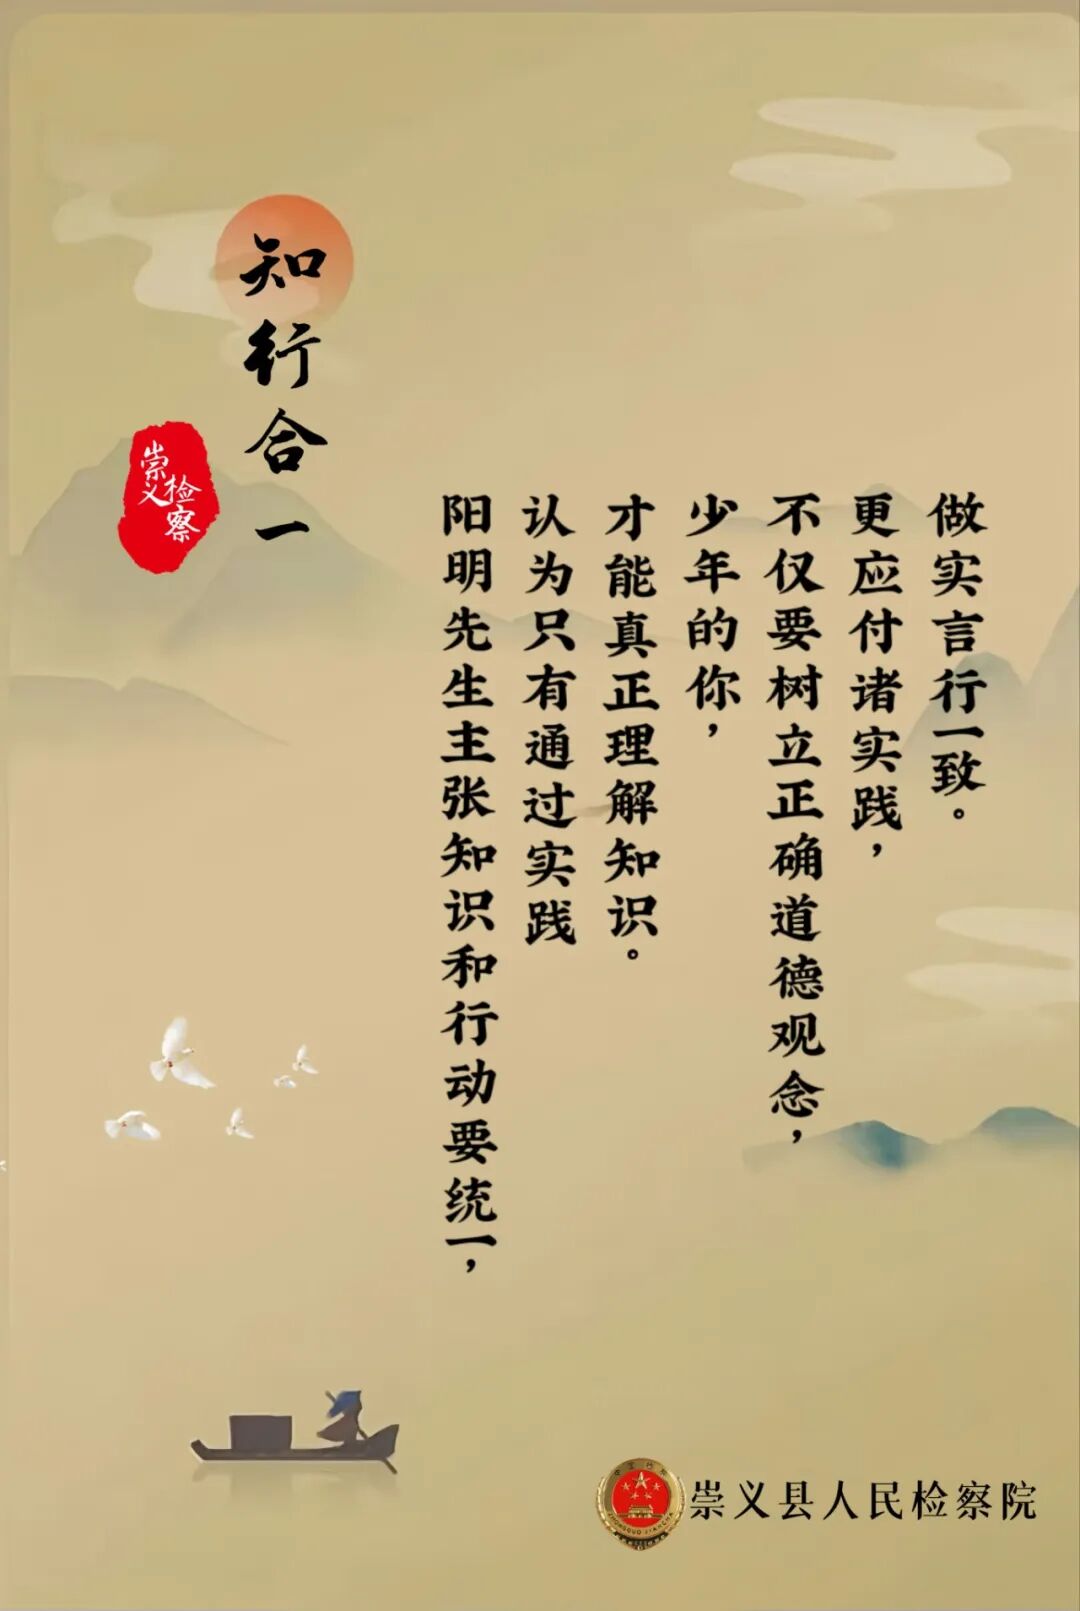 知行合一
崇义
检察
阳明先生主张知识和行动要统一，
认为只有通过实践
才能真正理解知识。
少年的你，
不仅要树立正确道德观念，
更应付诸实践，
做实言行一致。
中国检察
ZHONGGUO JIANCHA
崇义县人民检察院